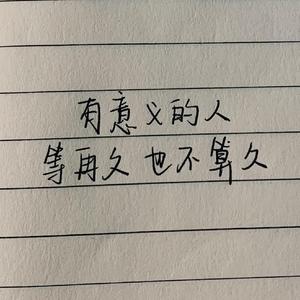 有意义的人
等再久也不算久